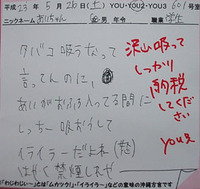 平成 23年 5月 26日(土) YOU・YOU2・YOU3 601号室
ニックネーム あいちゃん 女・男 年令 職業 学生
タバコ吸うなって
言ってんのに、
あいがおふろ入ってる間に
しっちー吸おうして
イライラーだよね(怒)
はやく禁煙しれや
沢山吸って
しっかり
納税
してくだ
さい
YOU2
「わじわじ〜」とは「ムカツク!」「イライラー」などの意味の沖縄方言です